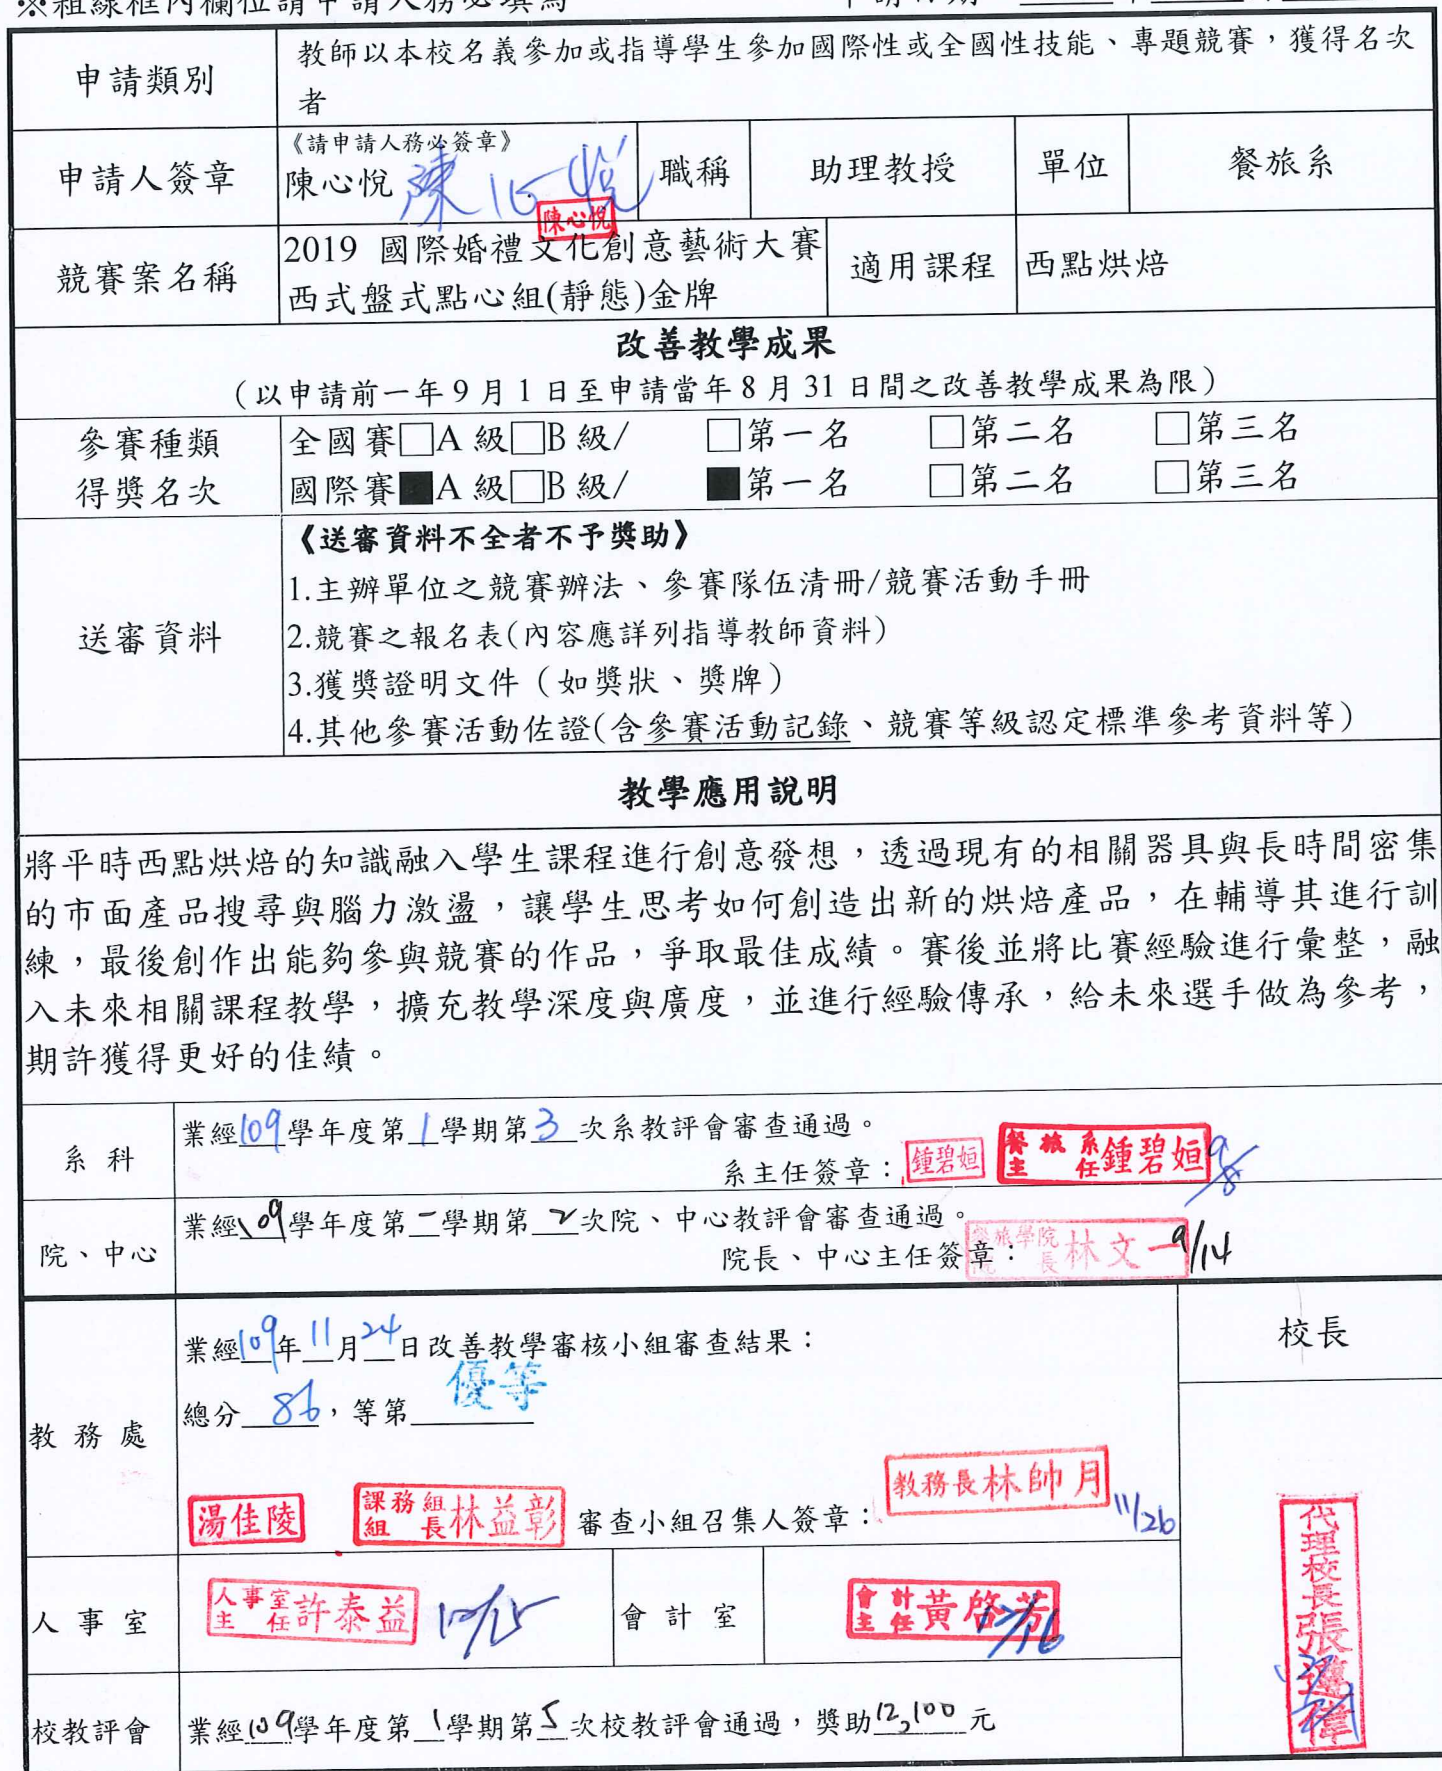 ※粗線框內欄位請申請人務必填寫
申請類別
教師以本校名義參加或指導學生參加國際性或全國性技能、專題競賽，獲得名次
者
申請人簽章
《請申請人務必簽章》
陳心悅 陳心悅
陳心悅
職稱
助理教授
單位
餐旅系
競賽案名稱
2019 國際婚禮文化創意藝術大賽
西式盤式點心組(靜態)金牌
適用課程
西點烘焙
改善教學成果
（以申請前一年9月1日至申請當年8月31日間之改善教學成果為限）
參賽種類
得獎名次
全國賽□A級□B級/ □第一名 □第二名 □第三名
國際賽■A級□B級/ ■第一名 □第二名 □第三名
送審資料
《送審資料不全者不予獎助》
1.主辦單位之競賽辦法、參賽隊伍清冊/競賽活動手冊
2.競賽之報名表(內容應詳列指導教師資料)
3.獲獎證明文件（如獎狀、獎牌）
4.其他參賽活動佐證(含參賽活動記錄、競賽等級認定標準參考資料等)
教學應用說明
將平時西點烘焙的知識融入學生課程進行創意發想，透過現有的相關器具與長時間密集
的市面產品搜尋與腦力激盪，讓學生思考如何創造出新的烘焙產品，在輔導其進行訓
練，最後創作出能夠參與競賽的作品，爭取最佳成績。賽後並將比賽經驗進行彙整，融
入未來相關課程教學，擴充教學深度與廣度，並進行經驗傳承，給未來選手做為參考，
期許獲得更好的佳績。
系科
業經109學年度第1學期第3次系教評會審查通過。
系主任簽章：鍾碧姮 餐旅系主任鍾碧姮 9/8
院、中心
業經109學年度第一學期第2次院、中心教評會審查通過。
院長、中心主任簽章：餐旅學院院長林文一 9/14
教務處
業經109年11月24日改善教學審核小組審查結果：
總分86，等第優等
湯佳陵 課務組組長林益彰 審查小組召集人簽章：教務長林帥月 11/26
校長
代理校長張
人事室
人事室主任許泰益 12/15
會計室
會計主任黃啓芳 12/16
校教評會
業經109學年度第1學期第5次校教評會通過，獎助12,100元